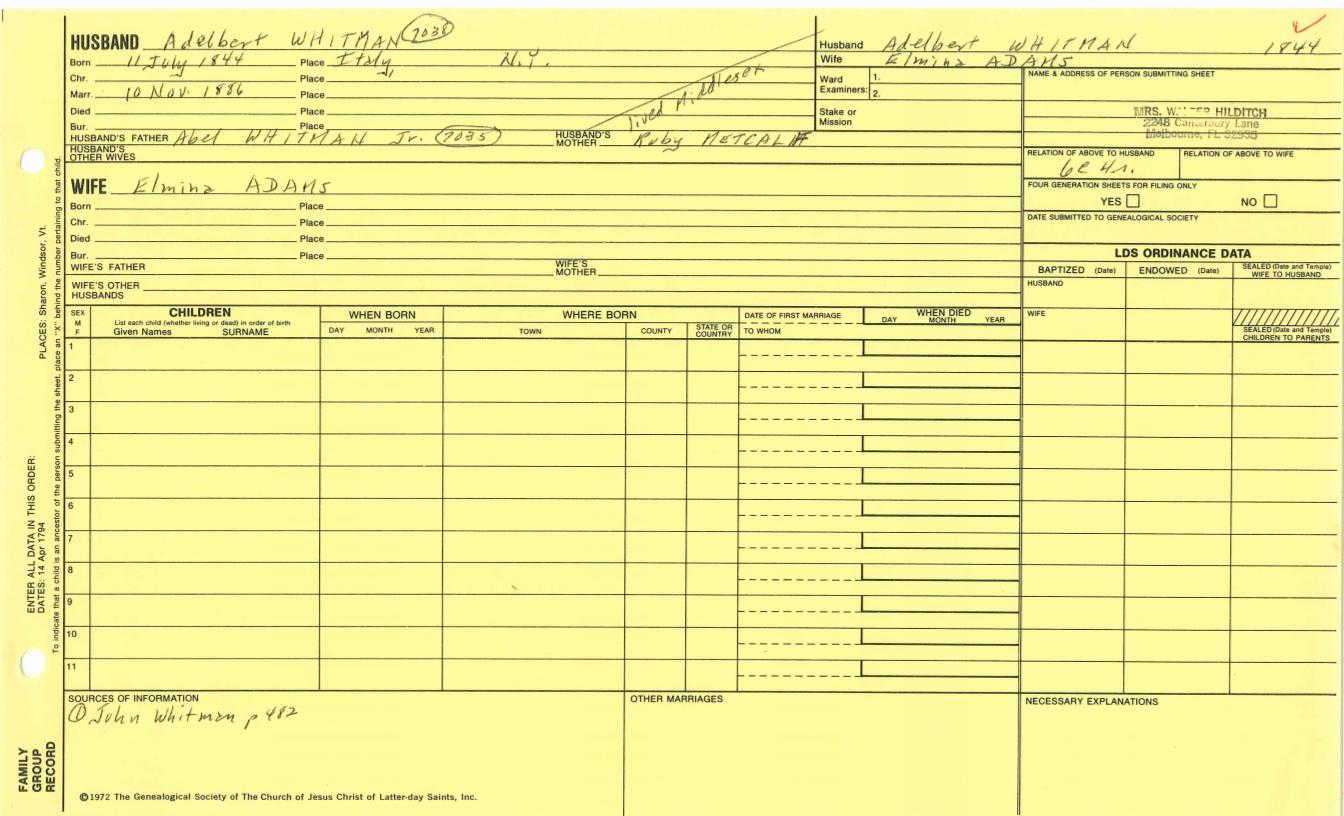 HUSBAND Adelbert WHITMAN 7038
Born 11 July 1844 Place Italy, N.Y.
Chr. Place
Marr. 10 Nov. 1886 Place
Died Place
Bur. Place
lived Middlesex
HUSBAND'S FATHER Abel WHITMAN Jr. 7035 HUSBAND'S MOTHER Ruby METCALF
HUSBAND'S OTHER WIVES
WIFE Elmina ADAMS
Born Place
Chr. Place
Died Place
Bur. Place
WIFE'S FATHER WIFE'S MOTHER
WIFE'S OTHER HUSBANDS
Husband Adelbert WHITMAN 1844
Wife Elmina ADAMS
Ward Examiners: 1. 2.
Stake or Mission
NAME & ADDRESS OF PERSON SUBMITTING SHEET
MRS. HILDITCH
2248 Canterbury Lane
Melbourne, FL
RELATION OF ABOVE TO HUSBAND RELATION OF ABOVE TO WIFE
6c 4r.
FOUR GENERATION SHEETS FOR FILING ONLY
YES NO
DATE SUBMITTED TO GENEALOGICAL SOCIETY
LDS ORDINANCE DATA
BAPTIZED (Date) ENDOWED (Date) SEALED (Date and Temple) WIFE TO HUSBAND
HUSBAND
WIFE
SEALED (Date and Temple) CHILDREN TO PARENTS
SEX M F
CHILDREN
List each child (whether living or dead) in order of birth
Given Names SURNAME
WHEN BORN
DAY MONTH YEAR
WHERE BORN
TOWN COUNTY STATE OR COUNTRY
DATE OF FIRST MARRIAGE
TO WHOM
WHEN DIED
DAY MONTH YEAR
1
2
3
4
5
6
7
8
9
10
11
SOURCES OF INFORMATION
① John Whitman p 482
OTHER MARRIAGES
NECESSARY EXPLANATIONS
©1972 The Genealogical Society of The Church of Jesus Christ of Latter-day Saints, Inc.
FAMILY GROUP RECORD
ENTER ALL DATA IN THIS ORDER:
DATES: 14 Apr 1794
PLACES: Sharon, Windsor, Vt.
To indicate that a child is an ancestor of the person submitting the sheet, place an "X" behind the number pertaining to that child.